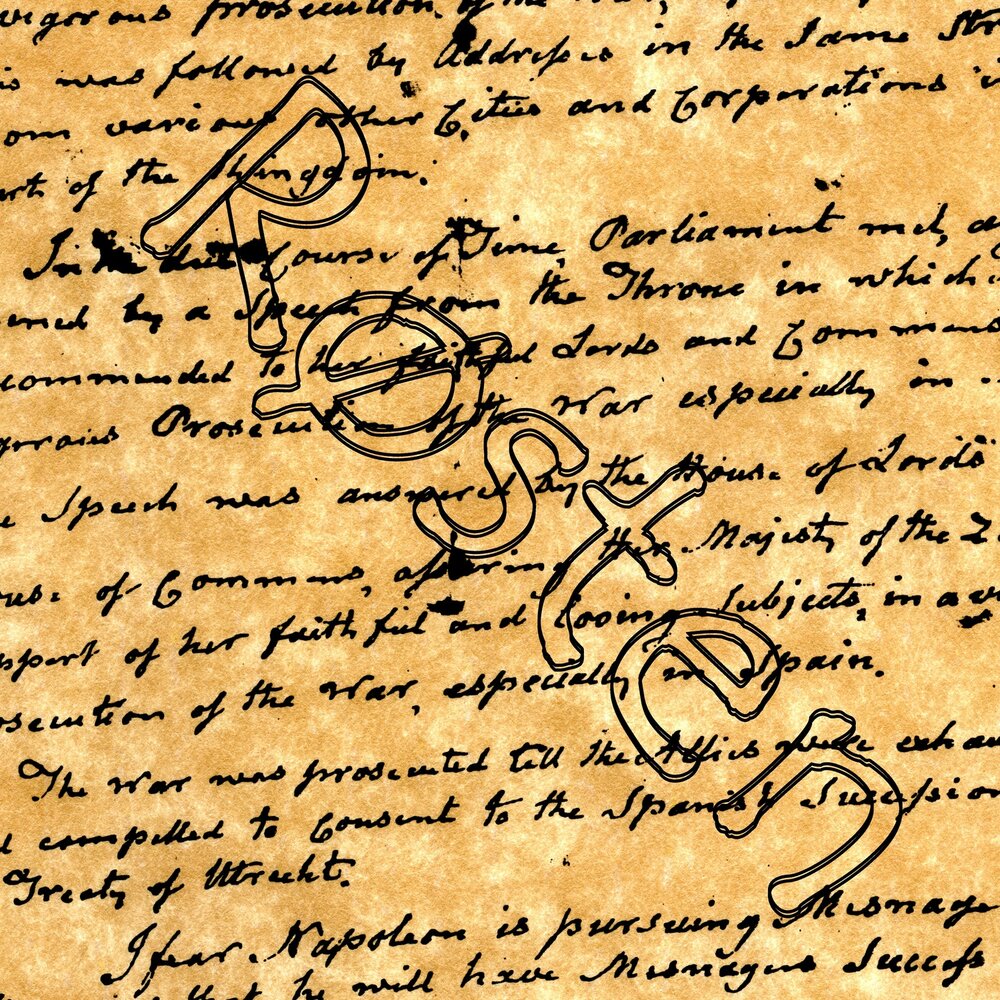 vigorous prosecution of the War,
is was followed by Addresses in the Same
om various other Cities and Corporations
art of the Kingdom.
In due Course of Time Parliament met,
by a Speech from the Throne in which
commended to her faithful Lords and Commons
Prosecution of the War especially in
Speech was answered by the House of Lords
of Commons, assuring her Majesty of the
of her faithful and loving Subjects, in a
osecution of the War, especially in Spain.
The War was prosecuted till the Allies were
compelled to Consent to the Spanish Succession
Treaty of Utrecht.
I fear Napoleon is pursuing Mesnager
he will have Mesnagers Success
Posten